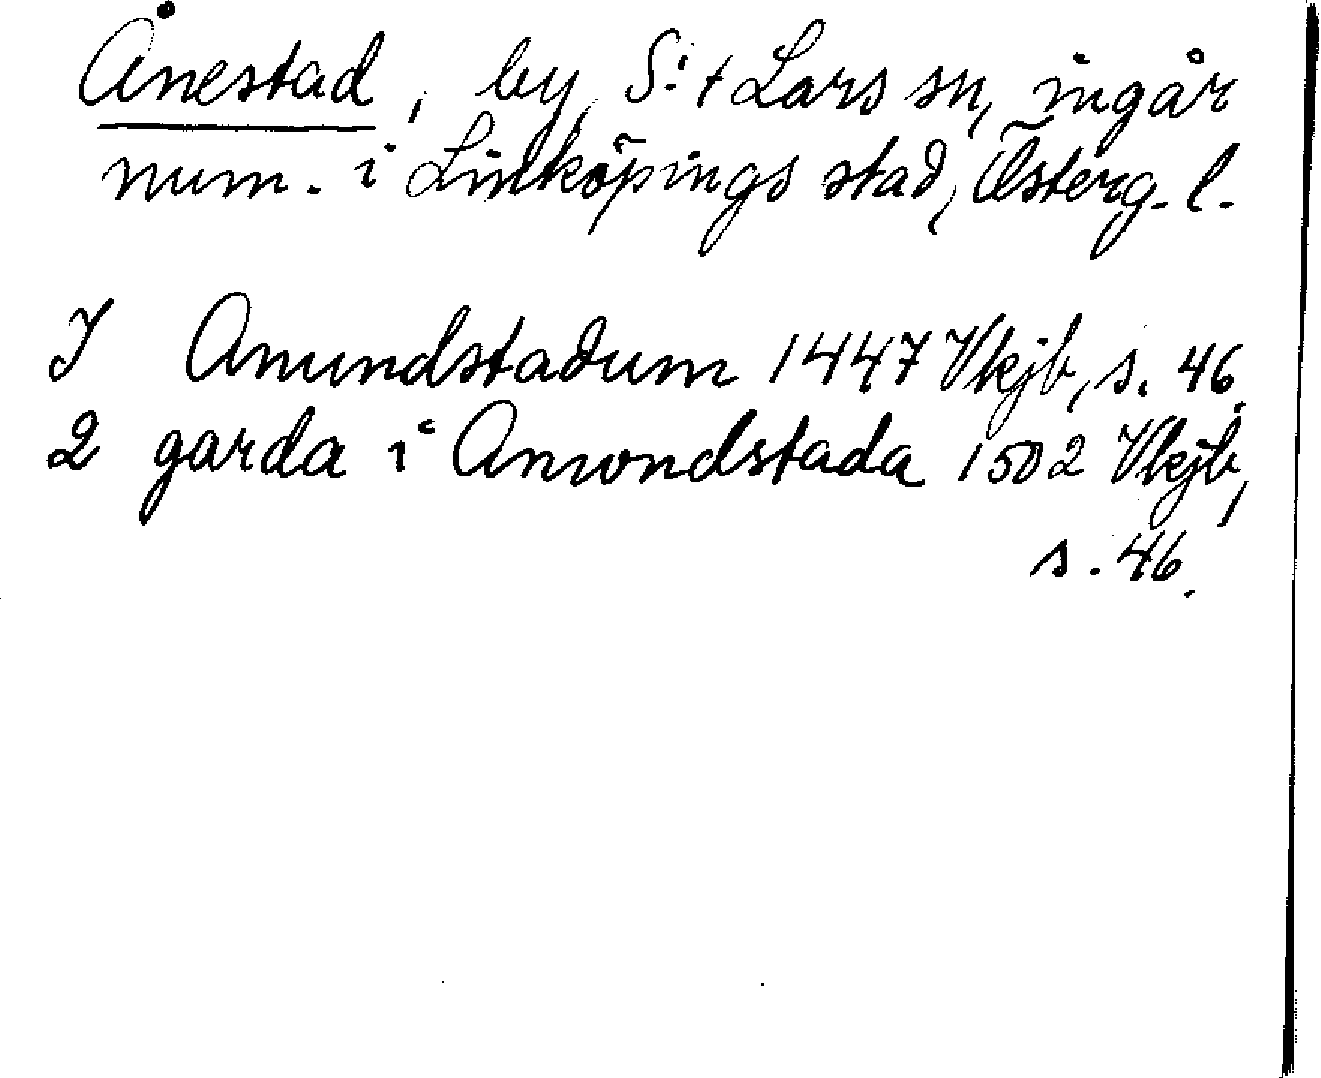 Ånestad, by, S:t Lars sn, ingår
num. i Linköpings stad, Österg. l.
I Amundstadum 1447 Vkjb, s. 46.
2 garda i Amondstada 1502 Vkjb,
s. 46.